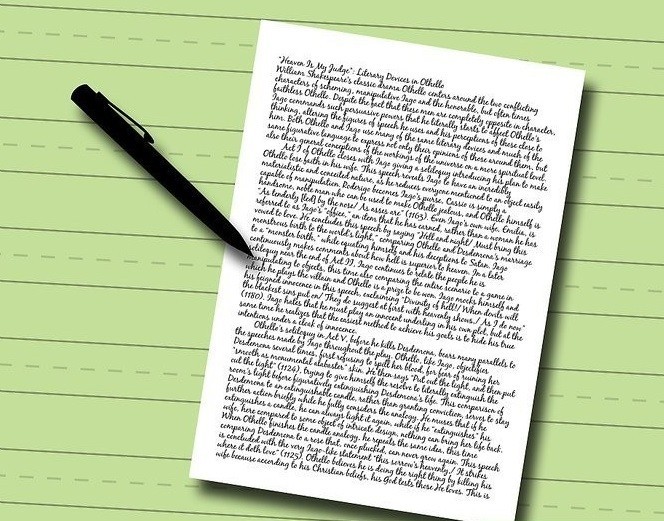 "Heaven Is My Judge": Literary Devices in Othello
William Shakespeare's classic drama Othello centers around the two conflicting
characters of scheming, manipulative Iago and the honorable, but often times
faithless Othello. Despite the fact that these men are completely opposite in character,
Iago commands such persuasive powers that he literally starts to affect Othello's
thinking, altering the figures of speech he uses and his perceptions of those close to
him. Both Othello and Iago use many of the same literary devices and much of the
same figurative language to express not only their opinions of those around them, but
also their general conceptions of the workings of the universe on a more spiritual level.
Act I of Othello closes with Iago giving a soliloquy introducing his plan to make
Othello lose faith in his wife. This speech reveals Iago to have an incredibly
materialistic and conceited nature, as he reduces everyone mentioned to an object easily
capable of manipulation. Roderigo becomes Iago's purse, Cassio is simply a
handsome, noble man who can be used to make Othello jealous, and Othello himself is
"As tenderly [led] by the nose/ As asses are" (1163). Even Iago's own wife, Emilia, is
referred to as Iago's "office," an item that he has earned, rather than a woman he has
vowed to love. He concludes this speech by saying "Hell and night/ Must bring this
monstrous birth to the world's light," comparing Othello and Desdemona's marriage
to a "monster birth," while equating himself and his deceptions to Satan. Iago
continuously makes comments about how hell is superior to heaven. In a later
soliloquy near the end of Act II, Iago continues to relate the people he is
manipulating to objects, this time also comparing the entire scenario to a game in
which he plays the villain and Othello is a prize to be won. Iago mocks himself and
his feigned innocence in this speech, exclaiming "Divinity of hell!/ When devils will
the blackest sins put on/ They do suggest at first with heavenly shows,/ As I do now"
(1180). Iago hates that he must play an innocent underling in his own plot, but at the
same time he realizes that the easiest method to achieve his goals is to hide his true
intentions under a cloak of innocence.
Othello's soliloquy in Act V, before he kills Desdemona, bears many parallels to
the speeches made by Iago throughout the play. Othello, like Iago, objectifies
Desdemona several times, first refusing to spill her blood, for fear of ruining her
"smooth as monumental alabaster" skin. He then says "Put out the light, and then put
out the light" (1124), trying to give himself the resolve to literally extinguish the
room's light before figuratively extinguishing Desdemona's life. This comparison of
Desdemona to an extinguishable candle, rather than granting conviction, serves to stay
further action briefly while he fully considers the analogy. He muses that if he
extinguishes a candle, he can always light it again, while if he "extinguishes" his
wife, here compared to some object of intricate design, nothing can bring her life back.
When Othello finishes the candle analogy, he repeats the same idea, this time
comparing Desdemona to a rose that, once plucked, can never grow again. This speech
is concluded with the very Iago-like statement "this sorrow's heavenly,/ It strikes
where it doth love" (1125). Othello believes he is doing the right thing by killing his
wife because according to his Christian beliefs, his God tests those He loves. This is